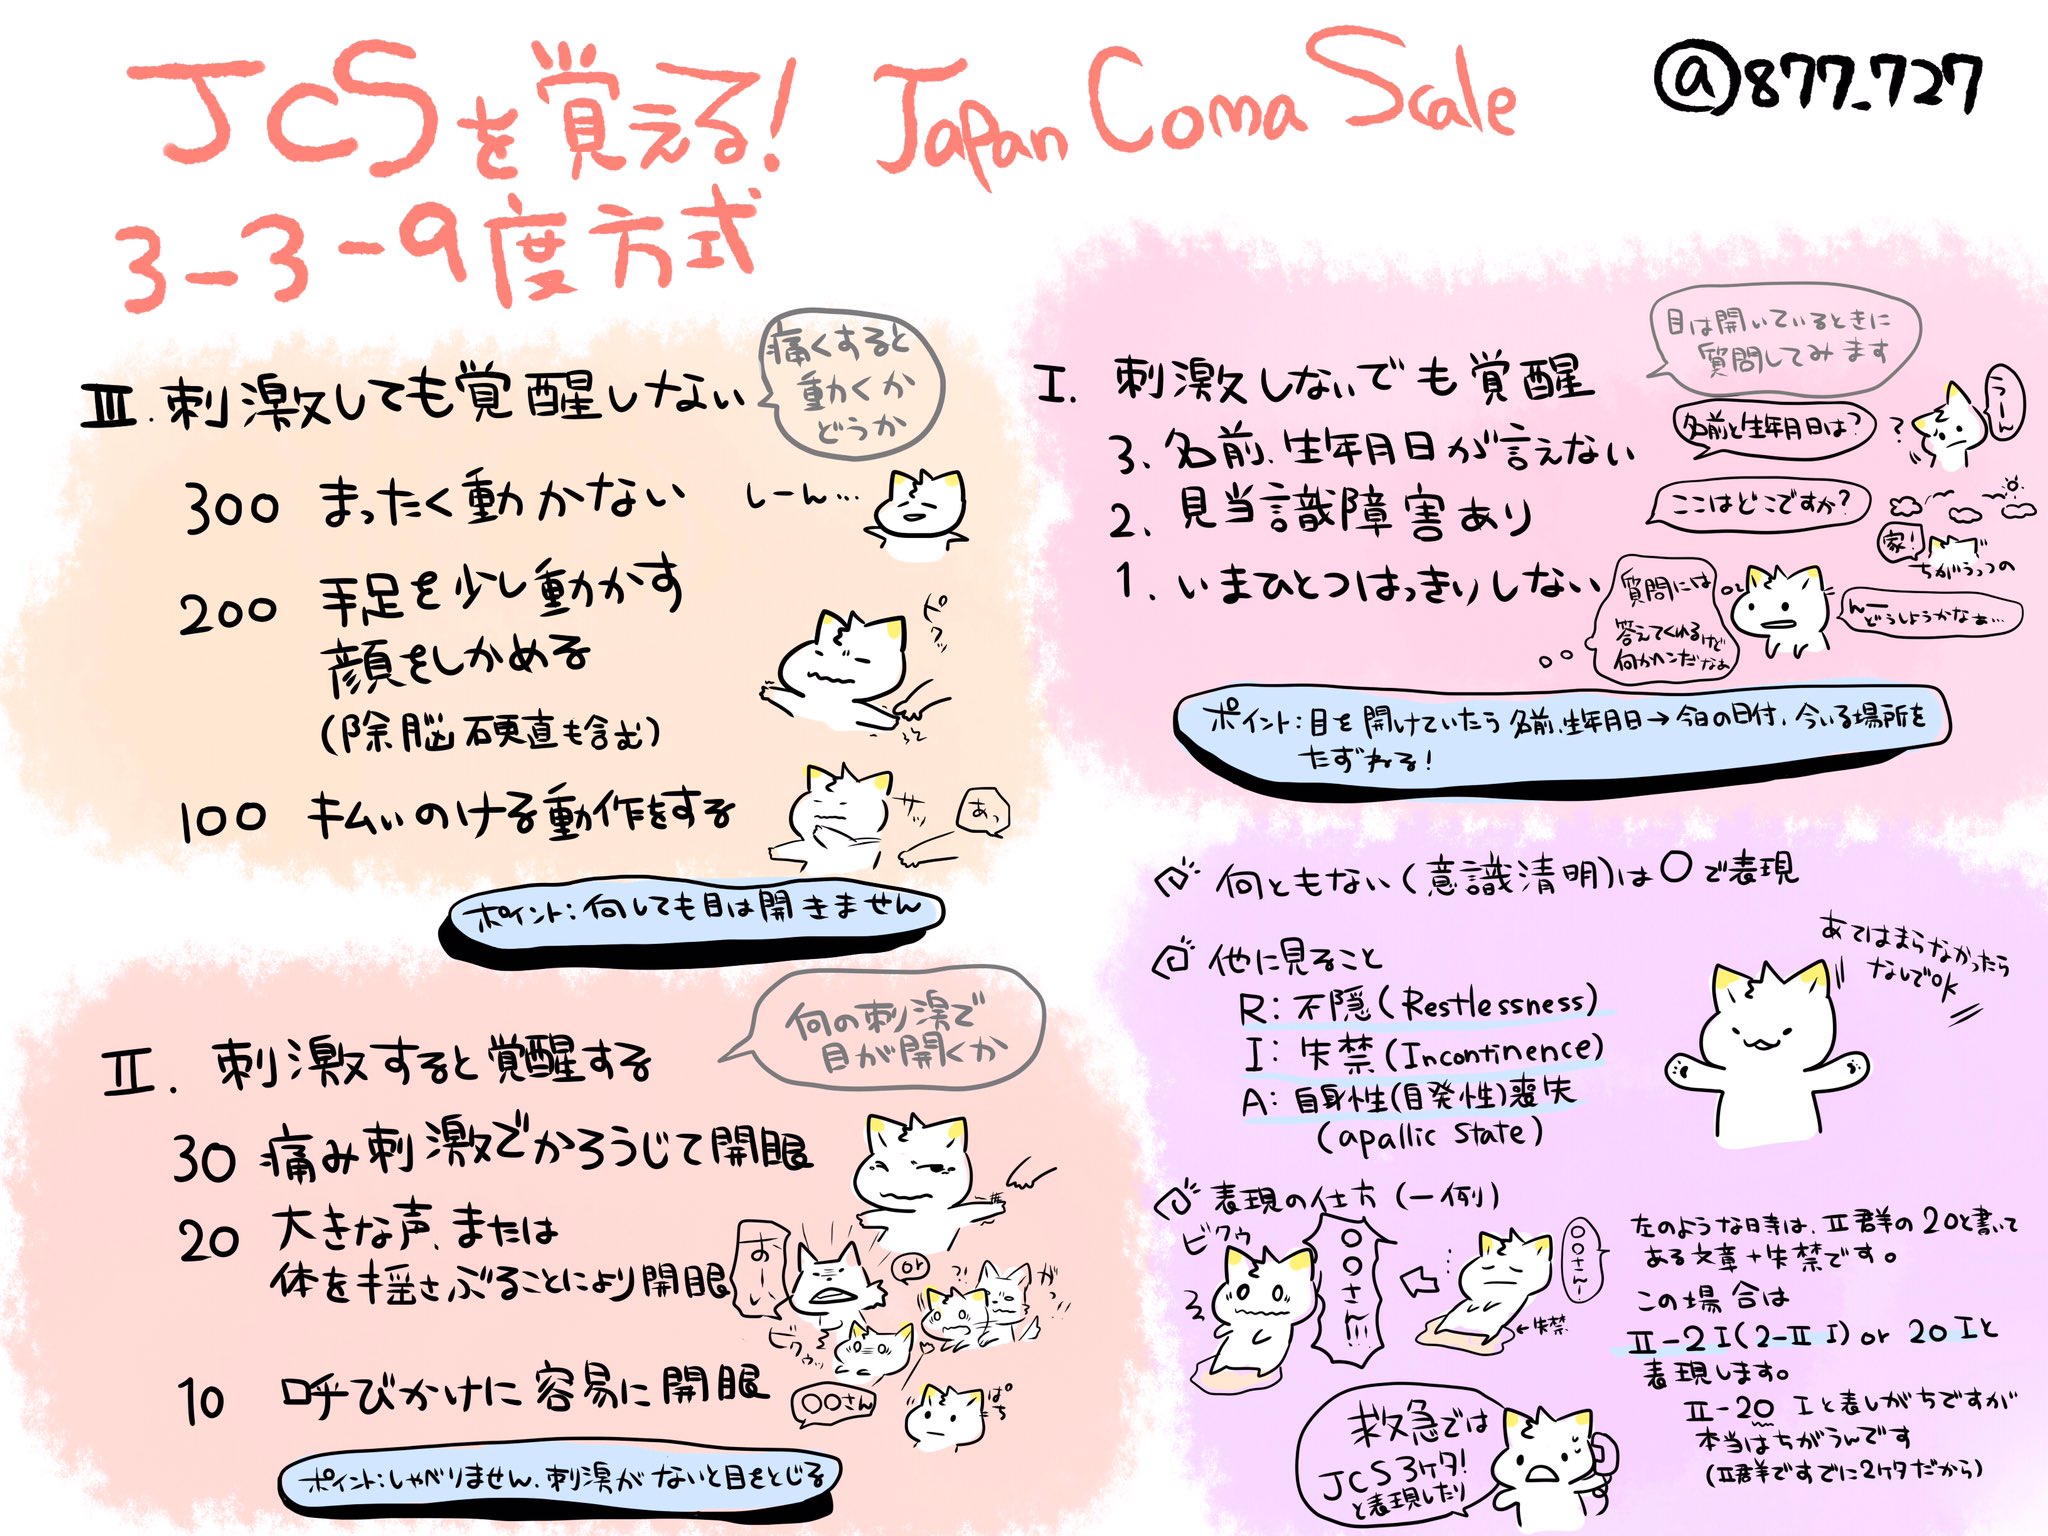 JCSを覚える! Japan Coma Scale
@877_727
3-3-9度方式
Ⅲ.刺激しても覚醒しない
痛くすると
動くか
どうか
300 まったく動かない
しーん…
200 手足を少し動かす
顔をしかめる
(除脳硬直も含む)
100 払いのける動作をする
サッ
あっ
ポイント:何しても目は開きません
Ⅱ.刺激すると覚醒する
何の刺激で
目が開くか
30 痛み刺激でかろうじて開眼
20 大きな声、または
体を揺さぶることにより開眼
おーい
or
ビクゥッ
10 呼びかけに容易に開眼
〇〇さん
ぱち
ポイント:しゃべりません、刺激がないと目をとじる
Ⅰ.刺激しないでも覚醒
目は開いているときに
質問してみます
3.名前、生年月日が言えない
名前と生年月日は?
?
うーん
2.見当識障害あり
ここはどこですか?
家!
ちがうっつの
1.いまひとつはっきりしない
質問には
答えてくれるけど
何かヘンだなぁ
んー
どうしようかなぁ…
ポイント:目を開けていたら名前、生年月日→今日の日付、今いる場所を
たずねる!
何ともない(意識清明)は0で表現
他に見ること
R:不隠(Restlessness)
I:失禁(Incontinence)
A:自身性(自発性)喪失
(apallic State)
あてはまらなかったら
なしでOK
表現の仕方(一例)
ビクゥ
〇〇さん!!!
…
〇〇さんー
←失禁
左のような時は、Ⅱ群の20と書いて
ある文章+失禁です。
この場合は
Ⅱ-2I(2-ⅡI) or 20Iと
表現します。
Ⅱ-20 Iと表しがちですが
本当はちがうんです
(Ⅱ群ですでに2ケタだから)
救急では
JCS3ケタ!
と表現したり